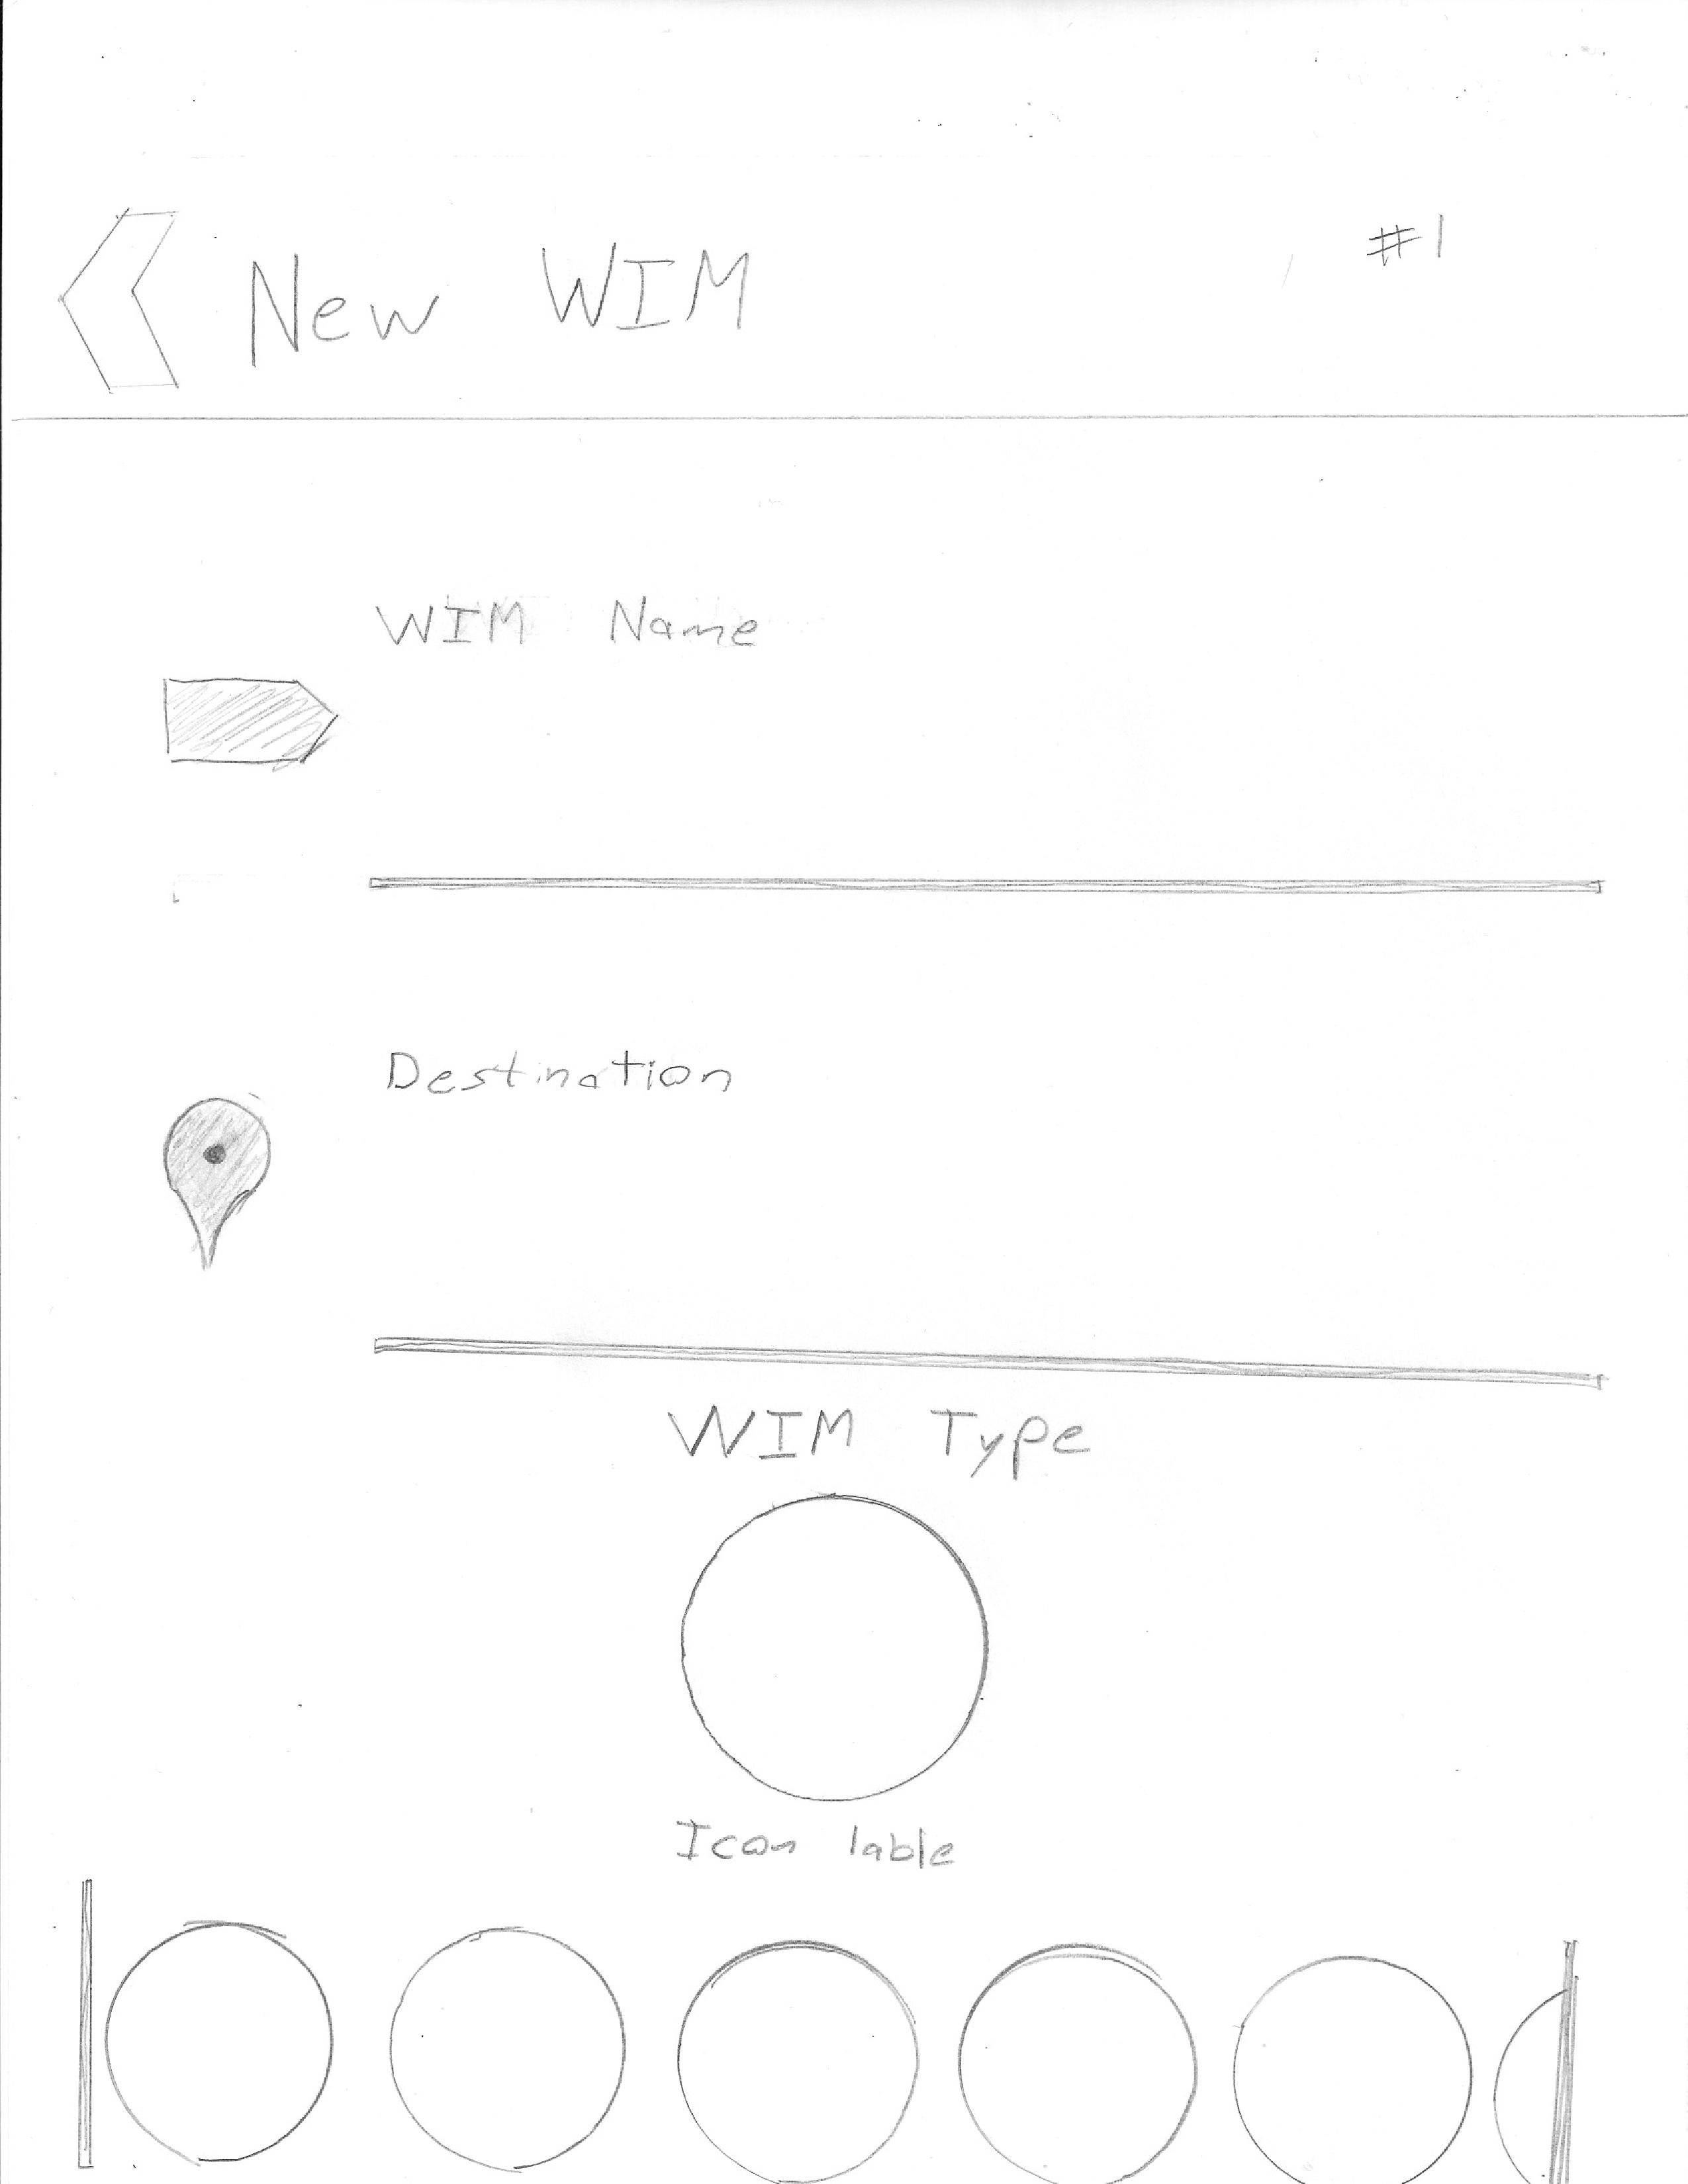 New WIM #1
WIM Name
Destination
WIM Type
Icon lable